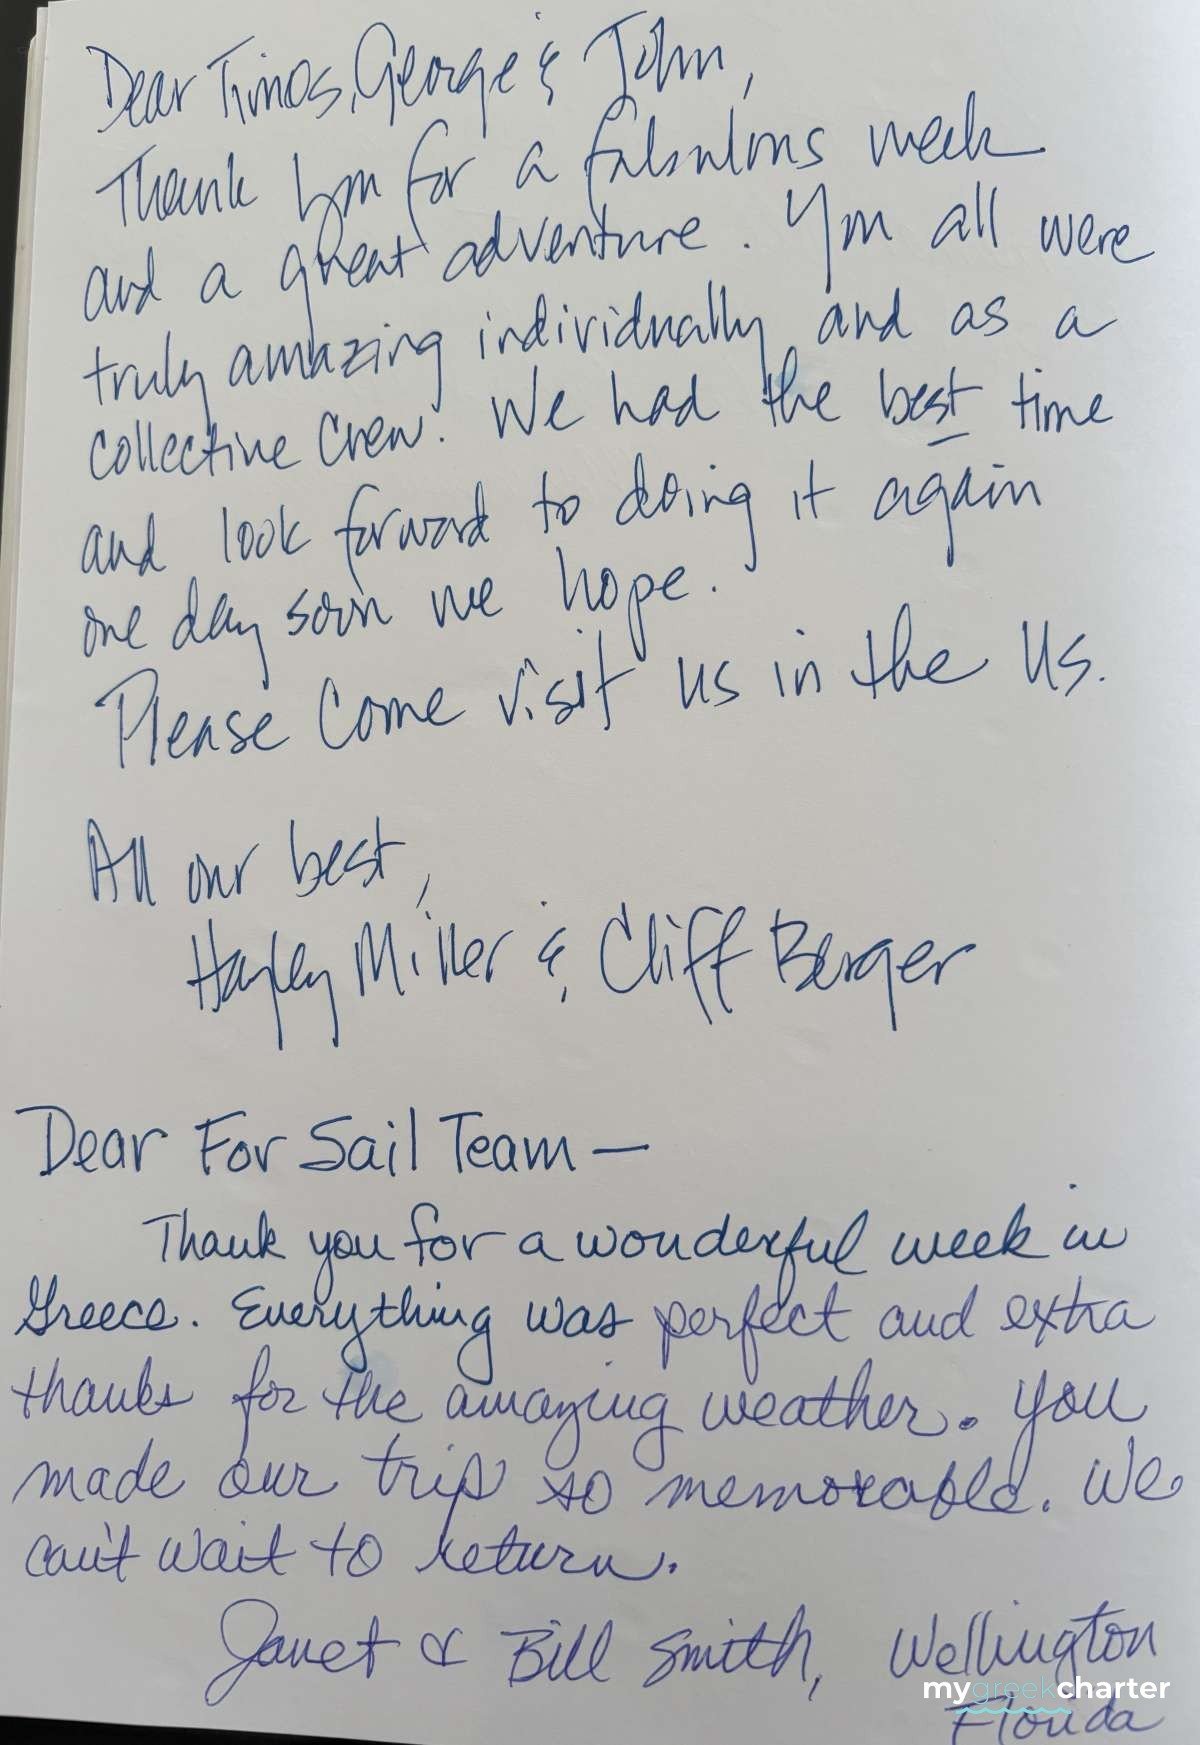 Dear Timos, George & John,
Thank you for a fabulous week
and a great adventure. You all were
truly amazing individually and as a
collective crew. We had the best time
and look forward to doing it again
one day soon we hope.
Please come visit us in the US.
All our best,
Hayley Miller & Cliff Berger
Dear For Sail Team —
Thank you for a wonderful week in
Greece. Everything was perfect and extra
thanks for the amazing weather. You
made our trip so memorable. We
can't wait to return.
Janet & Bill Smith, Wellington
Florida
mygreekcharter